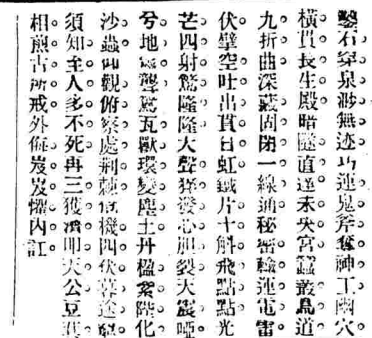 鑿石穿泉渺無迹巧運鬼斧奪神工幽穴
橫貫長生殿暗隧直達未央宮蠶叢鳥道
九折曲深藏固閉一線通秘密輸運電雷
伏擘空吐出貫白虹鐵片十斛飛點點光
芒四射驚隆隆大聲猝發心胆裂天震啞
兮地聾鴛瓦獸環變塵土丹楹紫陛化
沙蟲仰觀俯察處荆棘危機四伏暮途窮
須知至人多不死再三獲濟叩天公豆萁
相煎古所戒外侮岌岌懼內訌